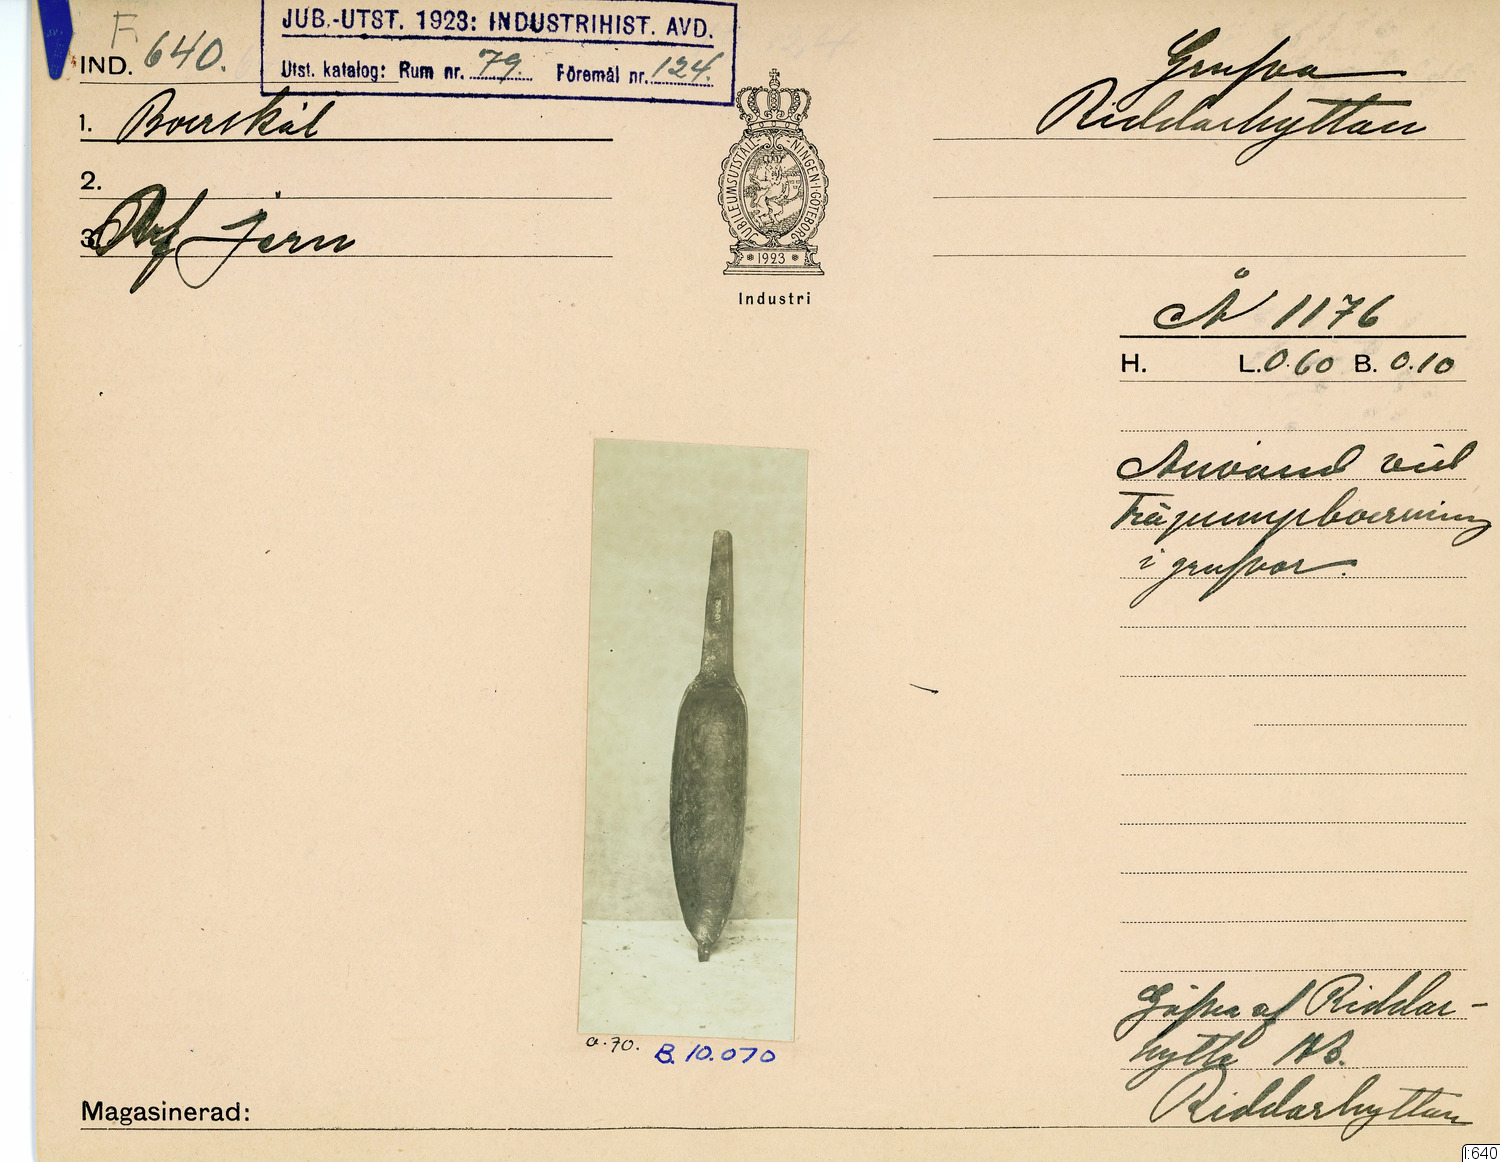 F.
IND. 640.
JUB.-UTST. 1923: INDUSTRIHIST. AVD.
Utst. katalog: Rum nr. 79. Föremål nr. 124.
1. Boerskål
2.
3. Af jern
JUBILEUMSUTSTÄLLNINGEN·I·GÖTEBORG
* 1923 *
Industri
Grufva
Riddarhyttan
Å 1176
H. L. 0.60 B. 0.10
Använd vid
Träpumpboerning
i grufvor.
Gåfva af Riddar-
hytte AB.
Riddarhyttan
a.70. B. 10.070
Magasinerad:
I:640